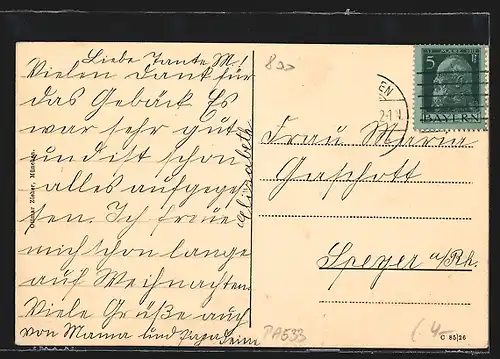 Liebe Tante M!
Vielen Dank für
das Gebäck Es
war sehr gut
und ist schon
alles aufgege
ssen. Ich freue
mich schon lange
auf Weihnachten
Viele Grüße auch
von Mama und Papa deine
Elisabeth
Ottmar Zieher, München.
800
5 Pf
BAYERN
Frau Maria
Gerschott
Speyer a/Rh.
PA533
C 85/26